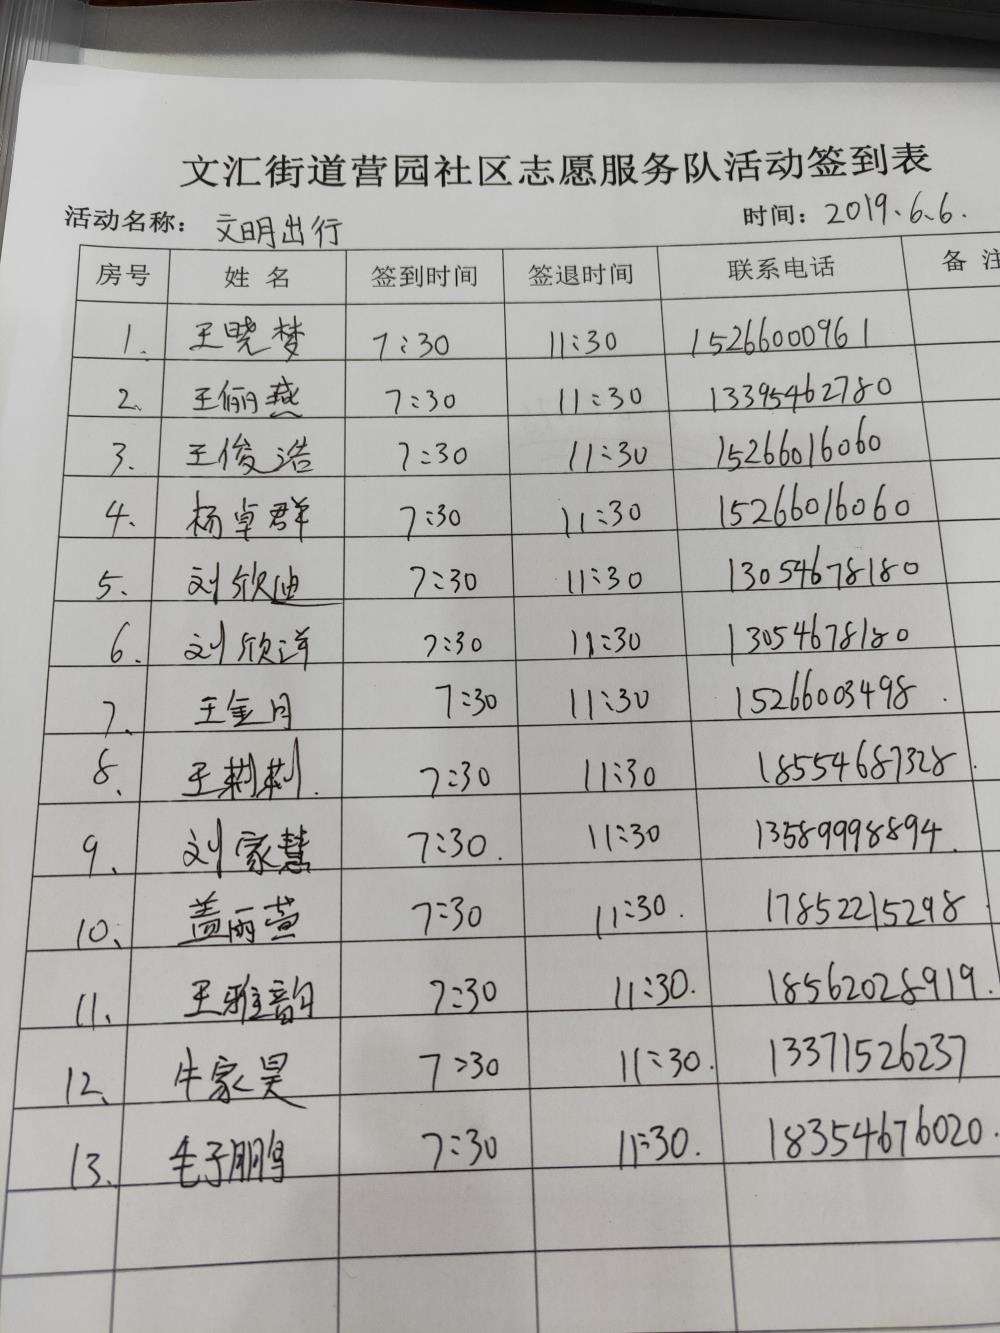 文汇街道营园社区志愿服务队活动签到表
活动名称：文明出行 时间：2019.6.6.
房号 姓名 签到时间 签退时间 联系电话 备注
1. 王晓梦 7:30 11:30 15266000961
2. 王俪燕 7:30 11:30 13395462780
3. 王俊浩 7:30 11:30 15266016060
4. 杨卓群 7:30 11:30 15266016060
5. 刘欣迪 7:30 11:30 13054678180
6. 刘欣洋 7:30 11:30 13054678180
7. 王金月 7:30 11:30 15266003498.
8. 王莉莉. 7:30 11:30 18554687328.
9. 刘家慧 7:30. 11:30 13589998894.
10、 盖丽萱 7:30 11:30. 17852215298
11、 王雅韵 7:30 11:30. 18562028919.
12、 牛家昊 7:30 11:30. 13371526237
13. 毛子鹏 7:30 11:30. 18354676020.